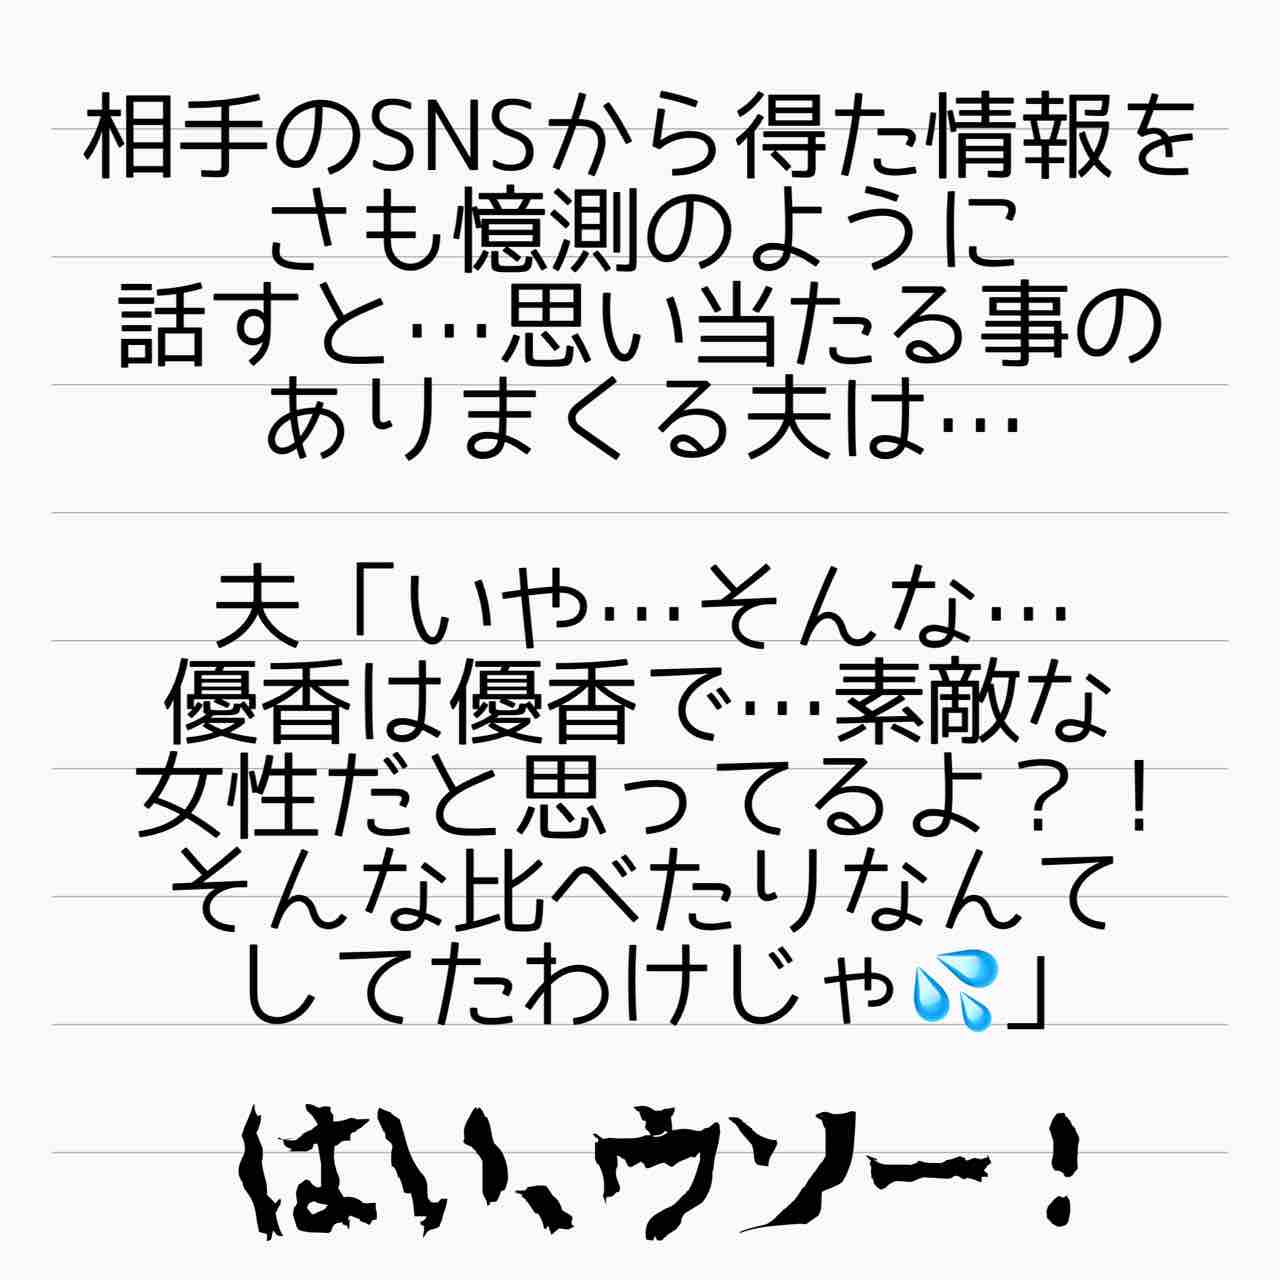 相手のSNSから得た情報を
さも憶測のように
話すと…思い当たる事の
ありまくる夫は…
夫「いや…そんな…
優香は優香で…素敵な
女性だと思ってるよ？！
そんな比べたりなんて
してたわけじゃ💦」
はい、ウソー！